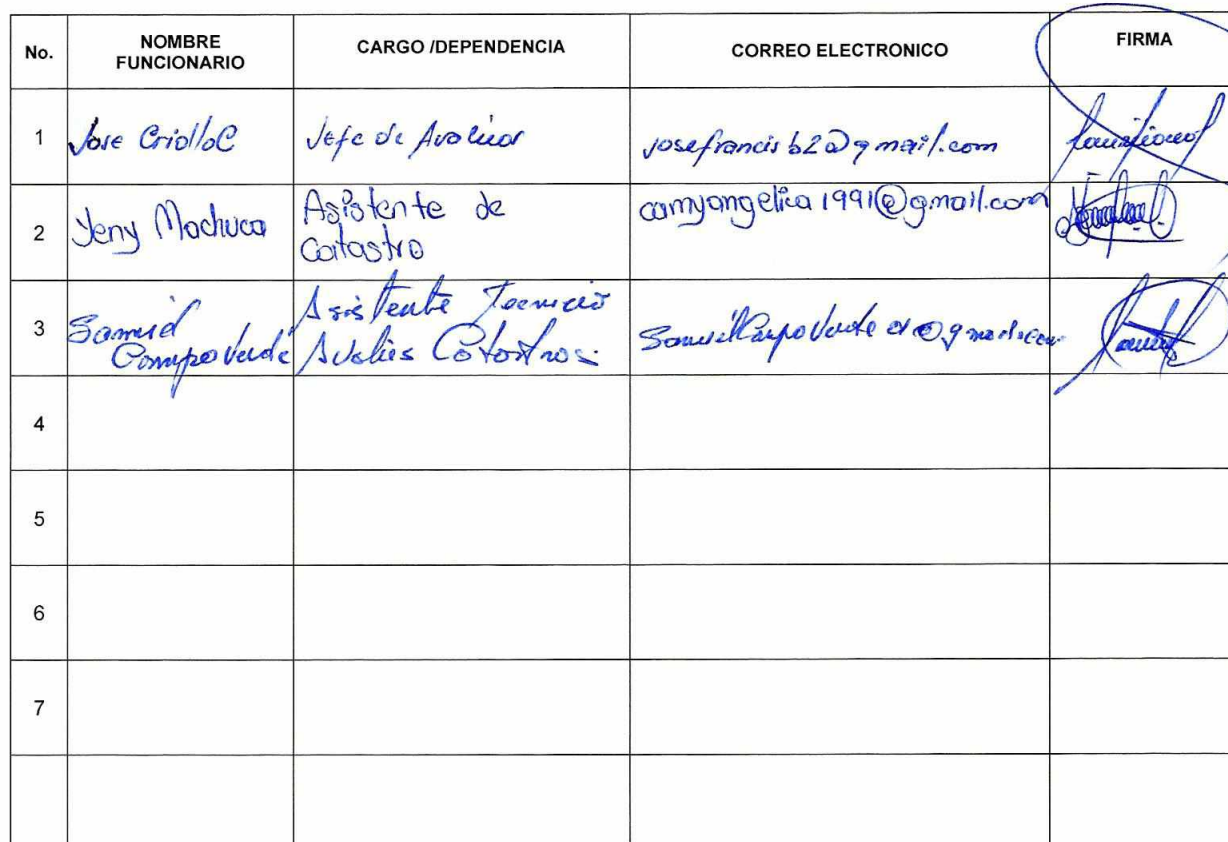 No. NOMBRE FUNCIONARIO CARGO /DEPENDENCIA CORREO ELECTRONICO FIRMA
1 Jose Criollo C Jefe de Avalúos josefrancis62@gmail.com
2 Yeny Machuca Asistente de Catastro camyangelica1991@gmail.com
3 Samuel Campoverde Asistente Tecnico Avalúos Catastros.
4
5
6
7